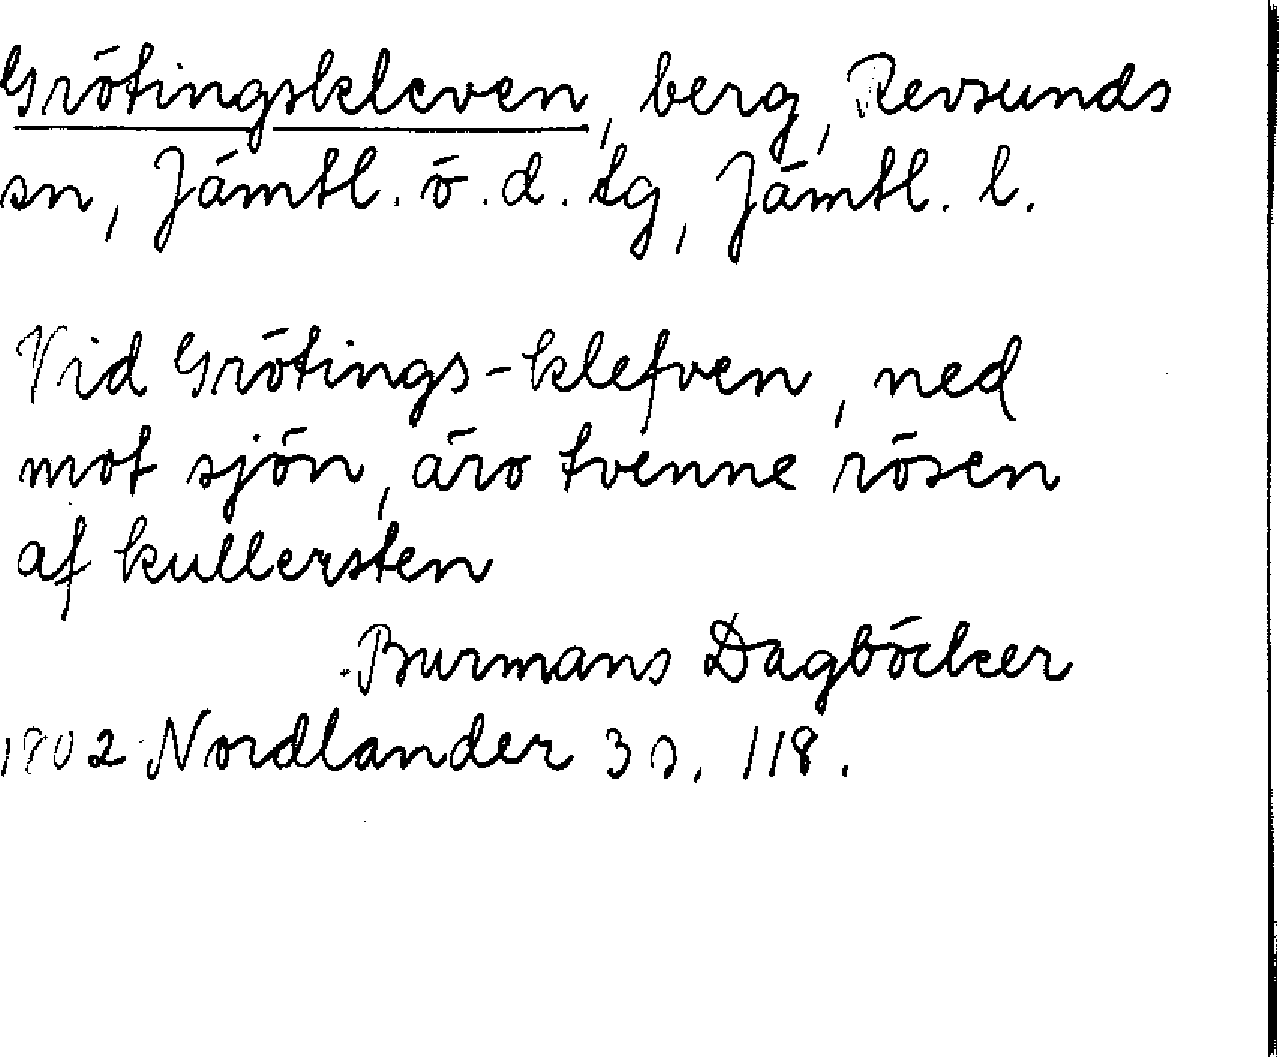 Grötingskleven, berg, Revsunds
sn, Jämtl. ö. d. tg, Jämtl. l.
Vid Grötings-klefven, ned
mot sjön, äro tvenne rösen
af kullersten
Burmans Dagböcker
1802 Nordlander 3 s. 118.